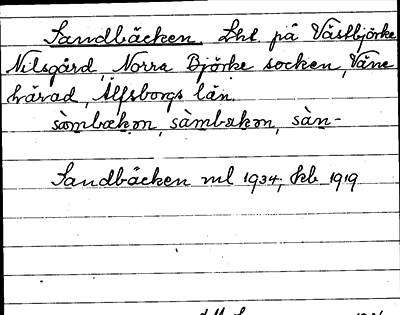 Sandbäcken. Lht. på Västbjörke
Nilsgård, Norra Björke socken, Väne
härad, Älfsborgs län.
sàmbækən, sàmbækən, sàn-
Sandbäcken ml 1934; kb 1919